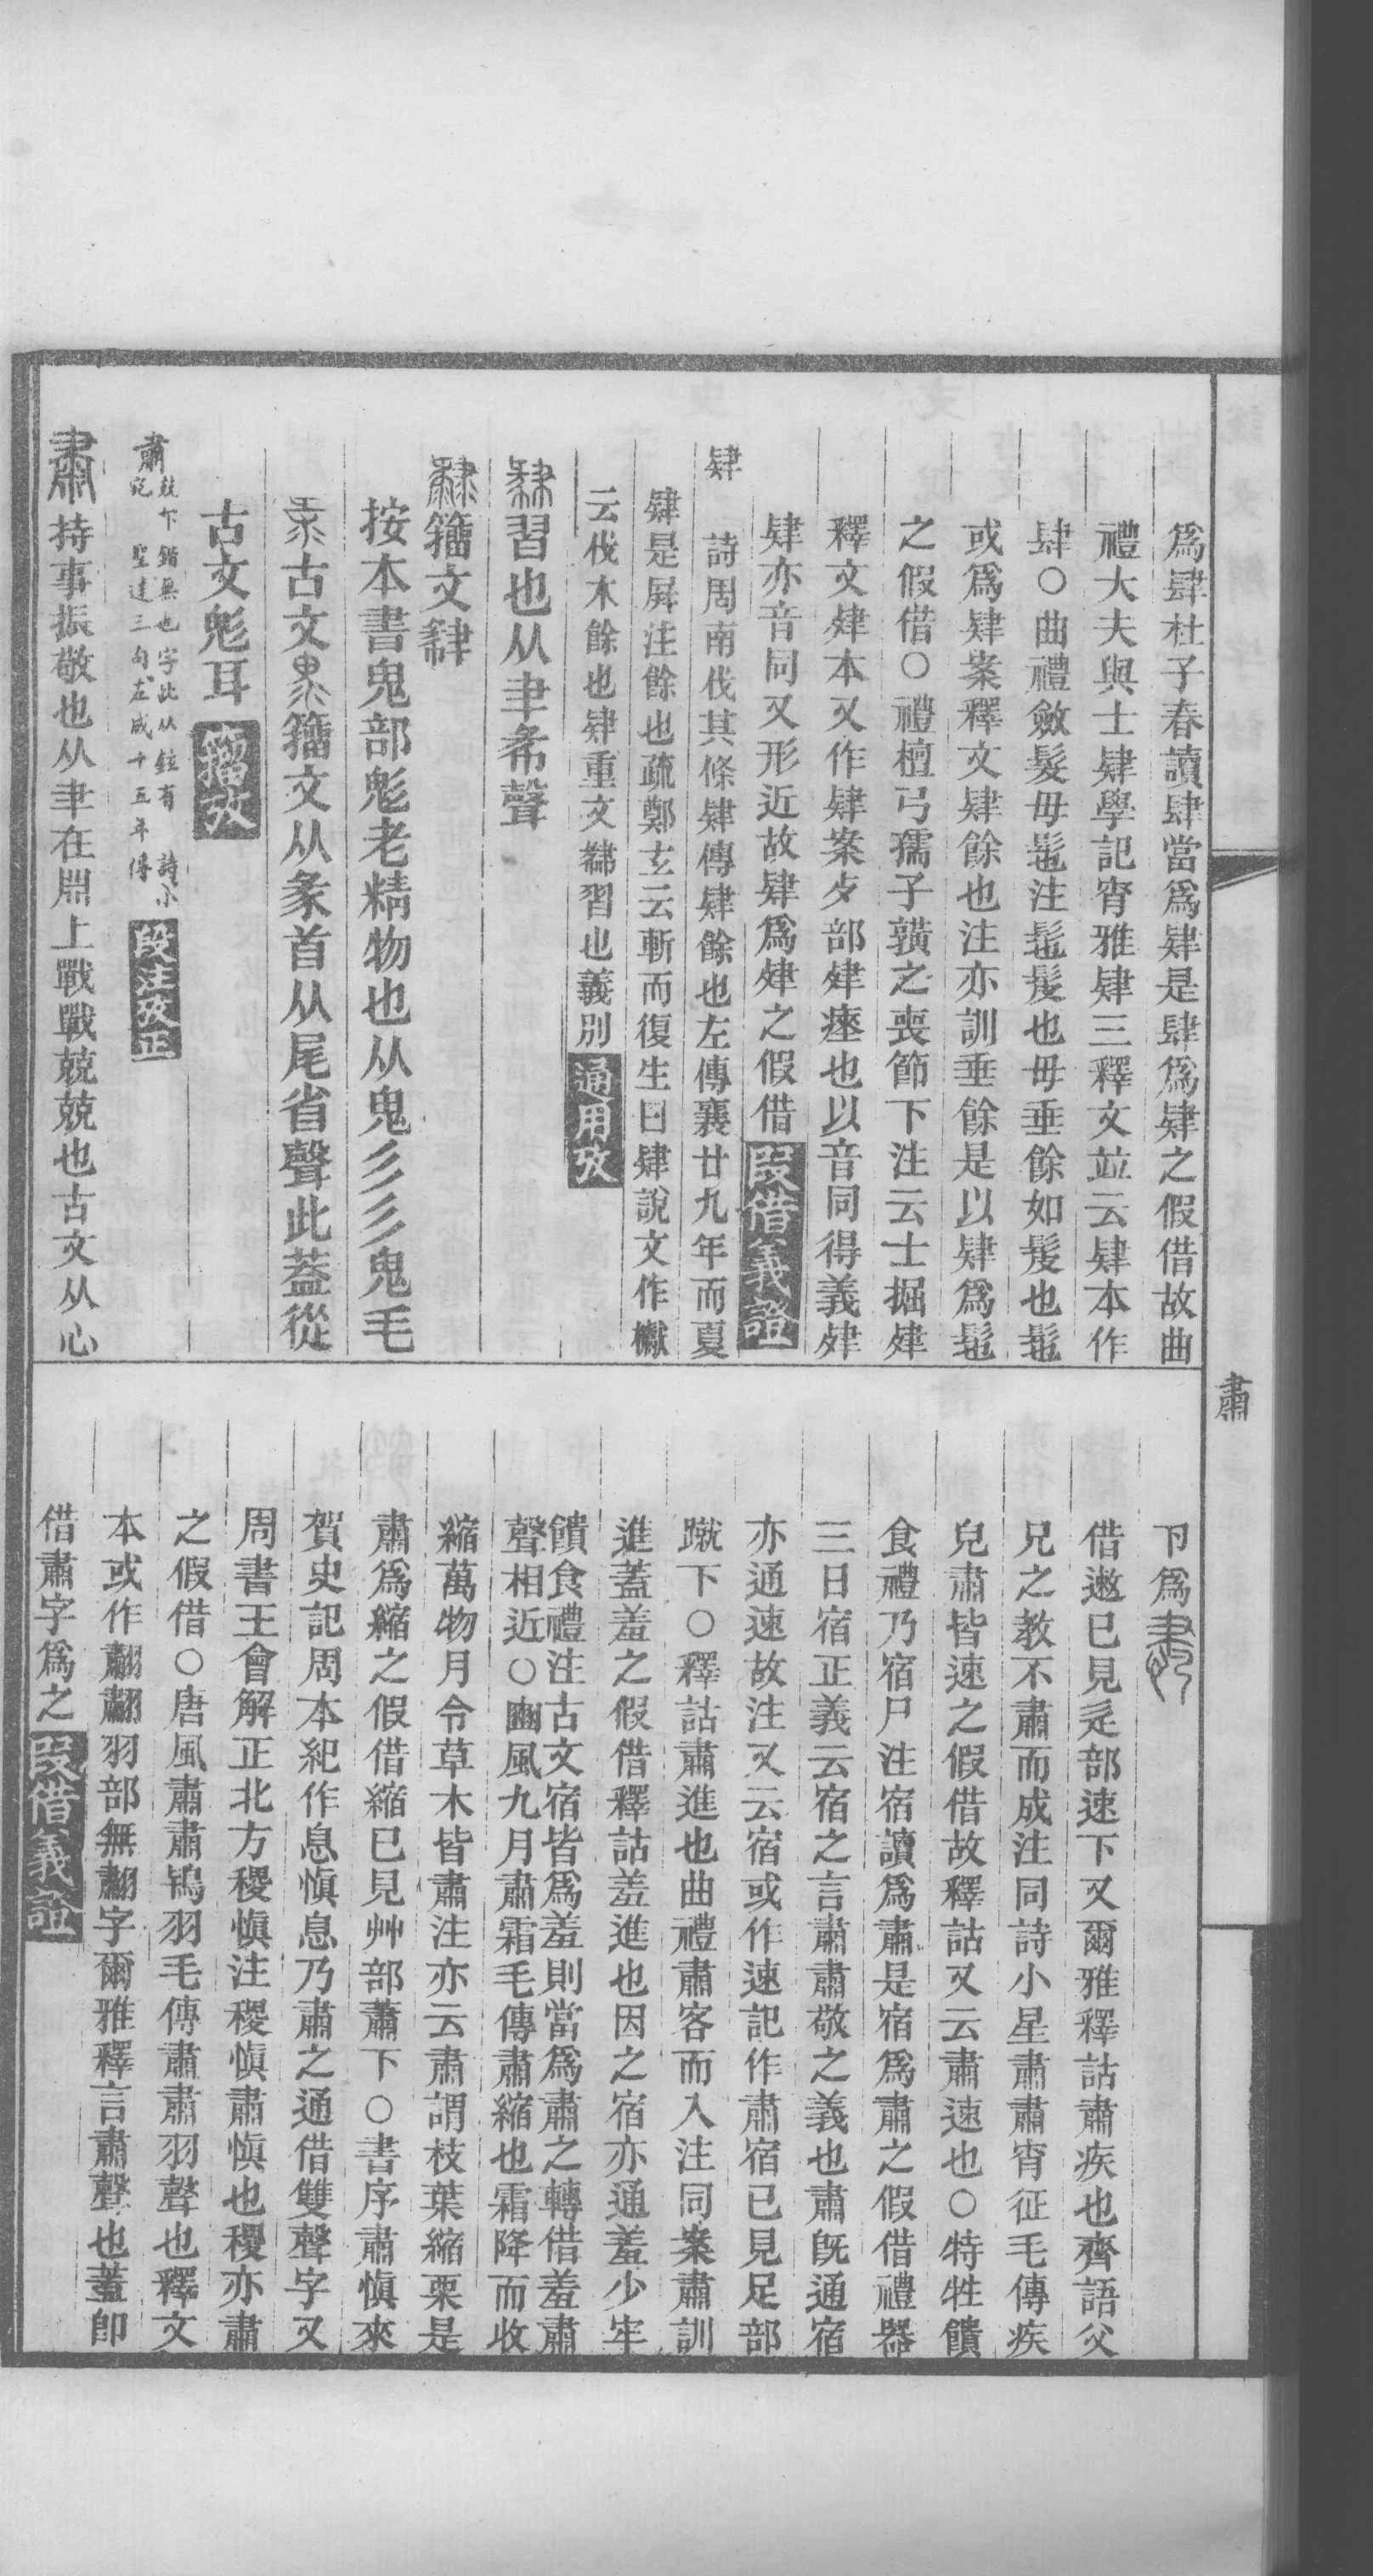 爲肆杜子春讀肆當爲肄是肆爲肄之假借故曲
禮大夫與士肄學記宵雅肄三釋文竝云肄本作
肆○曲禮斂髮毋髢注髢髲也毋垂餘如髲也髢
或爲肄案釋文肄餘也注亦訓垂餘是以肄爲髢
之假借○禮檀弓孺子䵃之喪節下注云士掘肂
釋文肂本又作肄案歺部肂瘞也以音同得義肂
肄亦音同又形近故肄爲肂之假借 叚借義證
肄
詩周南伐其條肄傳肄餘也左傳襄廿九年而夏
肄是屏注餘也疏鄭玄云斬而復生曰肄說文作櫱
云伐木餘也肄重文𦘠習也義別 通用攷
𦘠習也从𦘒㣇聲
籀文肄
按本書鬼部鬽老精物也从鬼彡彡鬼毛
古文籀文从彖首从尾省聲此蓋從
古文鬽耳 籀攷
肅 段注攷正
肅持事振敬也从𦘒在𣶒上戰戰兢兢也古文从心
肅
卪爲
借遬已見辵部速下又爾雅釋詁肅疾也齊語父
兄之教不肅而成注同詩小星肅肅宵征毛傳疾
皃肅皆速之假借故釋詁又云肅速也○特牲饋
食禮乃宿尸注宿讀爲肅是宿爲肅之假借禮器
三日宿正義云宿之言肅肅敬之義也肅旣通宿
亦通速故注又云宿或作速記作肅宿已見足部
蹴下○釋詁肅進也曲禮肅客而入注同案肅訓
進蓋羞之假借釋詁羞進也因之宿亦通羞少牢
饋食禮注古文宿皆爲羞則當爲肅之轉借羞肅
聲相近○豳風九月肅霜毛傳肅縮也霜降而收
縮萬物月令草木皆肅注亦云肅謂枝葉縮栗是
肅爲縮之假借縮已見艸部蕭下○書序肅愼來
賀史記周本紀作息愼息乃肅之通借雙聲字又
周書王會解正北方稷愼注稷愼肅愼也稷亦肅
之假借○唐風肅肅鴇羽毛傳肅肅羽聲也釋文
本或作䎘䎘羽部無䎘字爾雅釋言肅聲也蓋卽
借肅字爲之 叚借義證